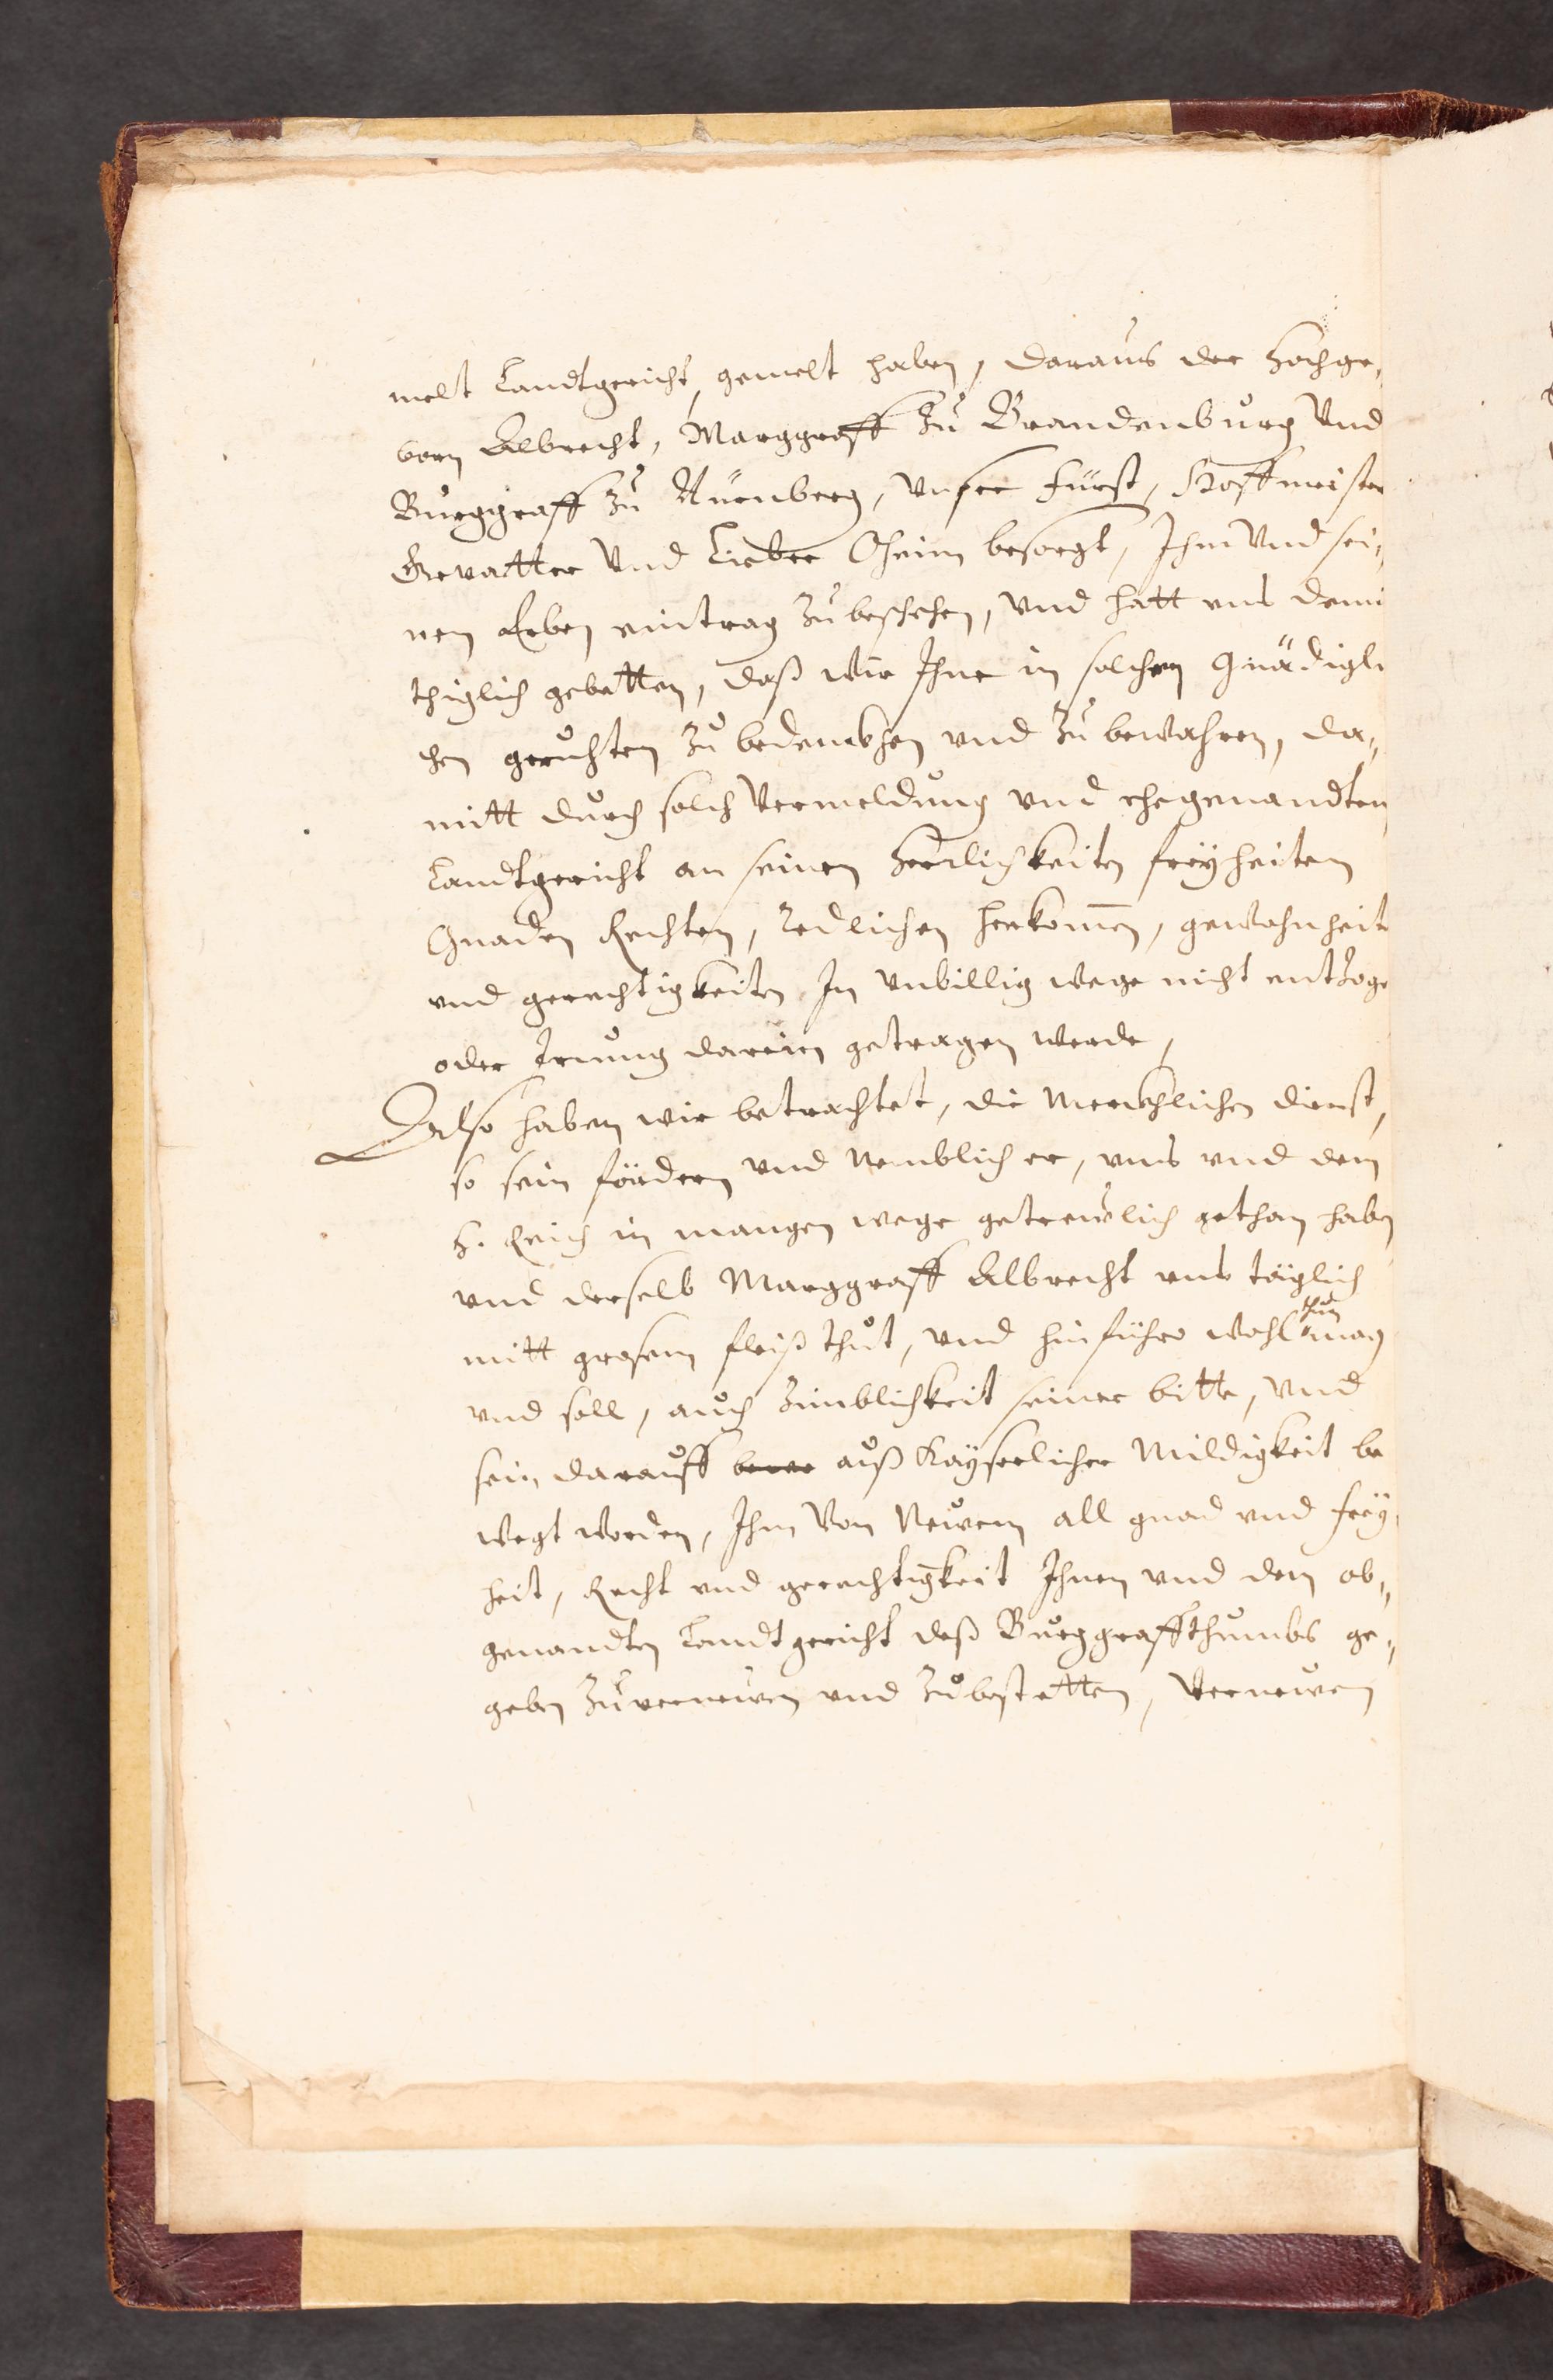 melt Landtgericht gemelt haben, daraus der Hochge,
born Albrecht, Marggraff zu Brandenburg Und
Burggraff zu Nürnberg, Unser Fürst, Hoffmeister
Gevatter Und Lieber Oheim besorgt, Ihm Und sei,
nen Erben eintrag zu beschehen, Und hatt uns demü
thiglich gebetten, daß wir Ihne in solchen Gnädigli
chen geruhten zu bedenckhen und zu bewahren, da,,
mitt durch solch Vermeldung und ehegenandten
Landtgericht an seinen Herrlichkeiten freyheiten
Gnaden Rechten, redlichen herkomen, gewohnheite
und gerechtigkeiten In unbillig wege nicht entzoge
oder Irrung darein getragen werde,
Also haben wir betrachtet, die Merckhlichen dienst,
so sein fördern und Nemblich er, uns und dem
H. Reich in mangen wege getrewlich gethan haben
und derselb Marggraff Albrecht uns täglich
mitt grosem fleiß thut, und hinführo wohl thun mag
und soll, auch zimblichkeit seiner bitte, Und
sein darauff auß Kayserlicher Mildigkeit be
wegt worden, Ihm Von Newem all gnad und frey,
heit, Recht und gerechtigkeit Ihnen und dem ob,,
genandten Landtgericht deß Burggraffthumbs ge,
geben zu vernewen und zu bestetten, Vernewen